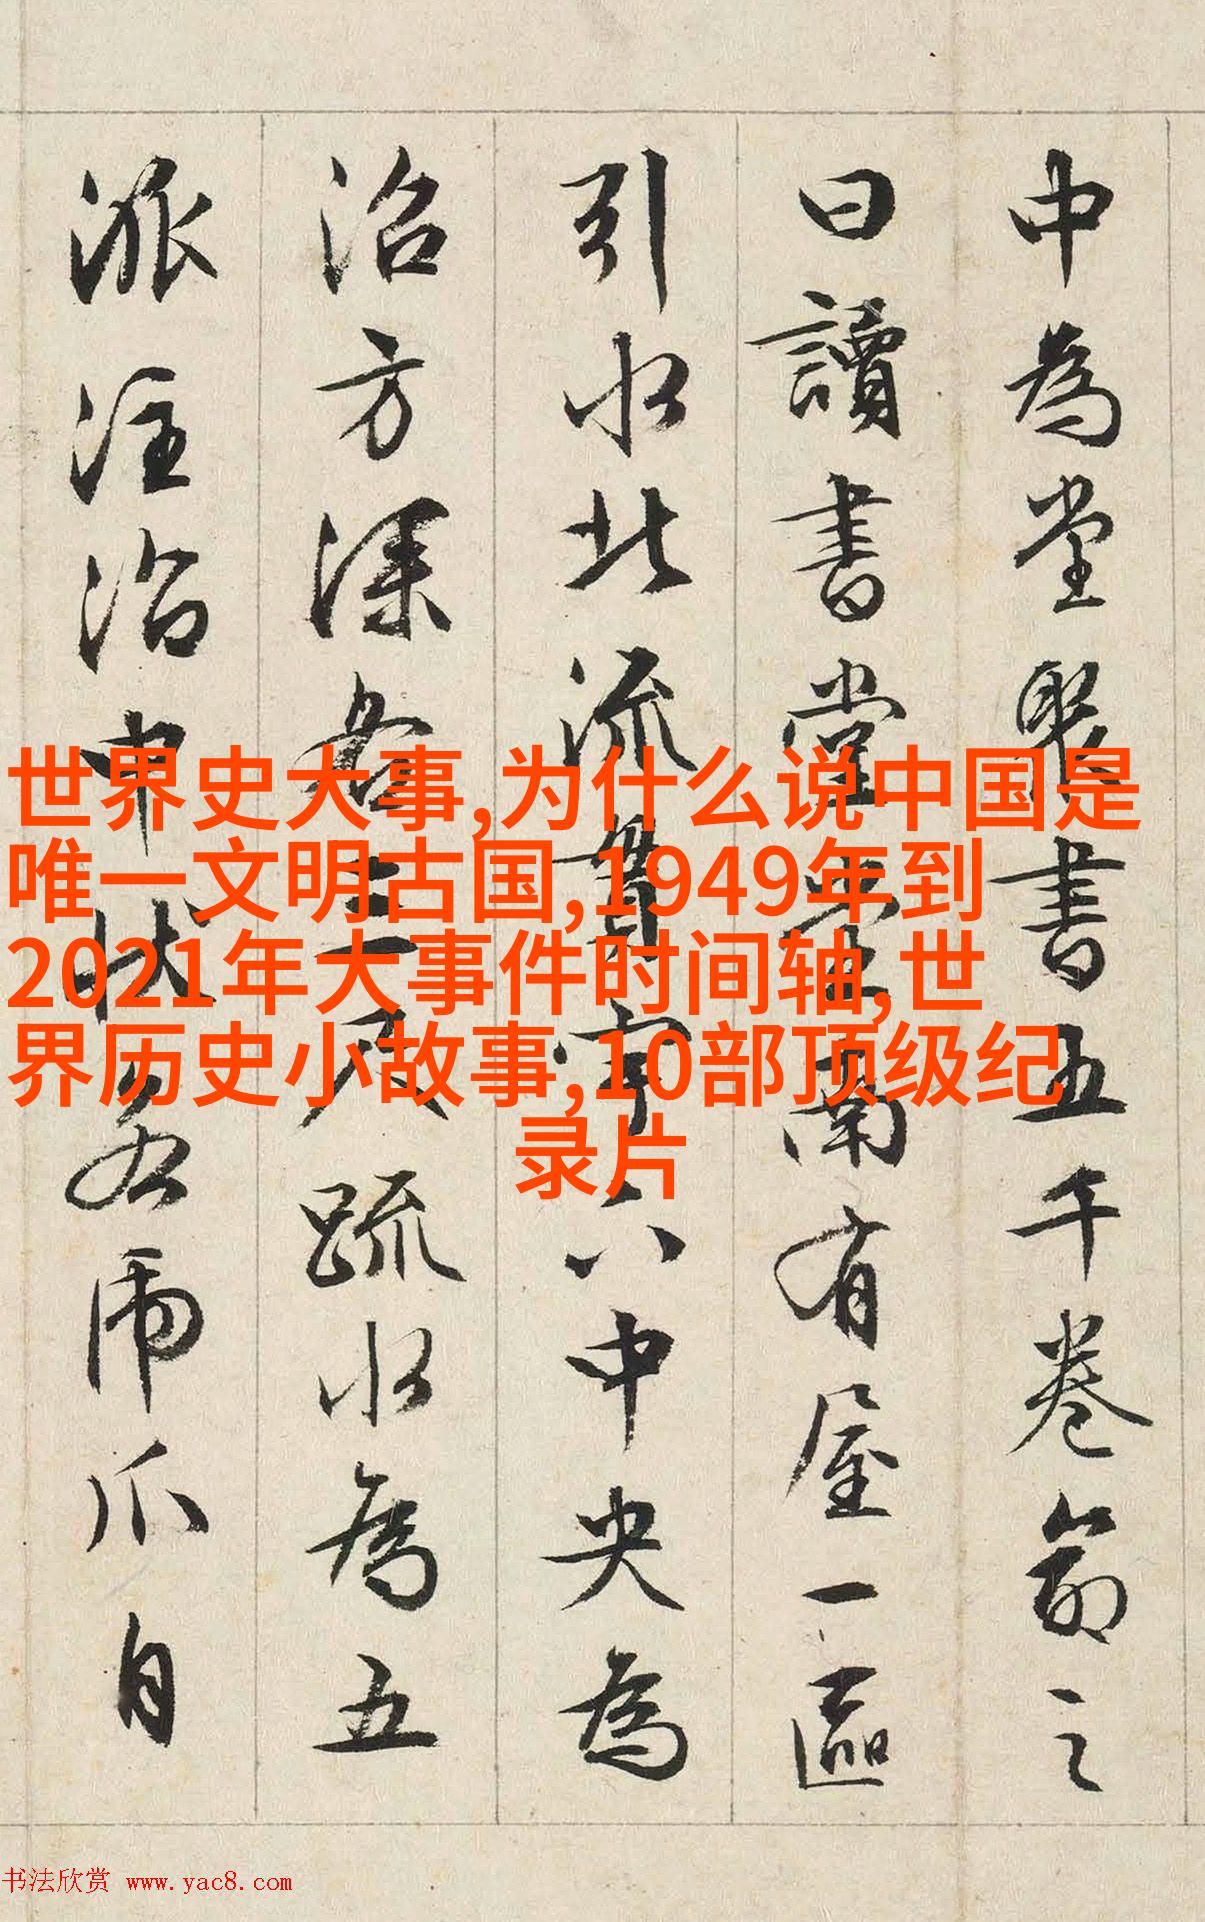 中為堂聚書五千卷命之
曰讀書堂堂南有屋一區
引水北流貫宇下中央為
沼方深各三尺疏水為五
派注沼中狀若虎爪自
世界史大事,为什么说中国是
唯一文明古国,1949年到
2021年大事件时间轴,世
界历史小故事,10部顶级纪
录片
书法欣赏 www.yac8.com